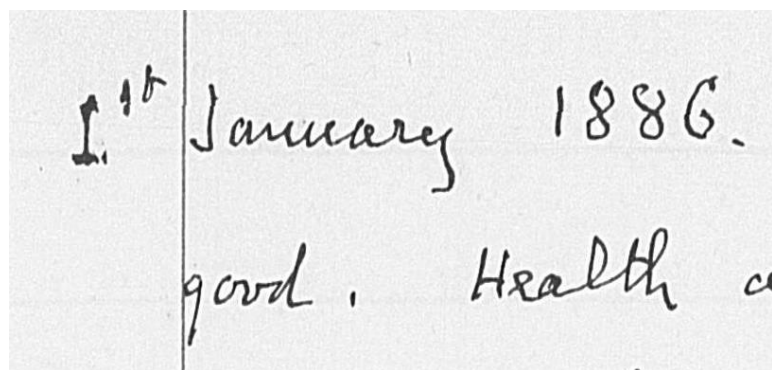 1.st January 1886.
good. Health